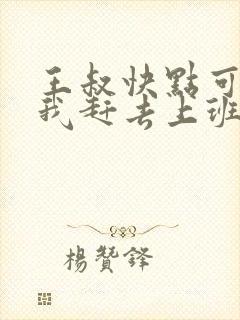 王叔快點可
我趕去上班
楊贊鋒